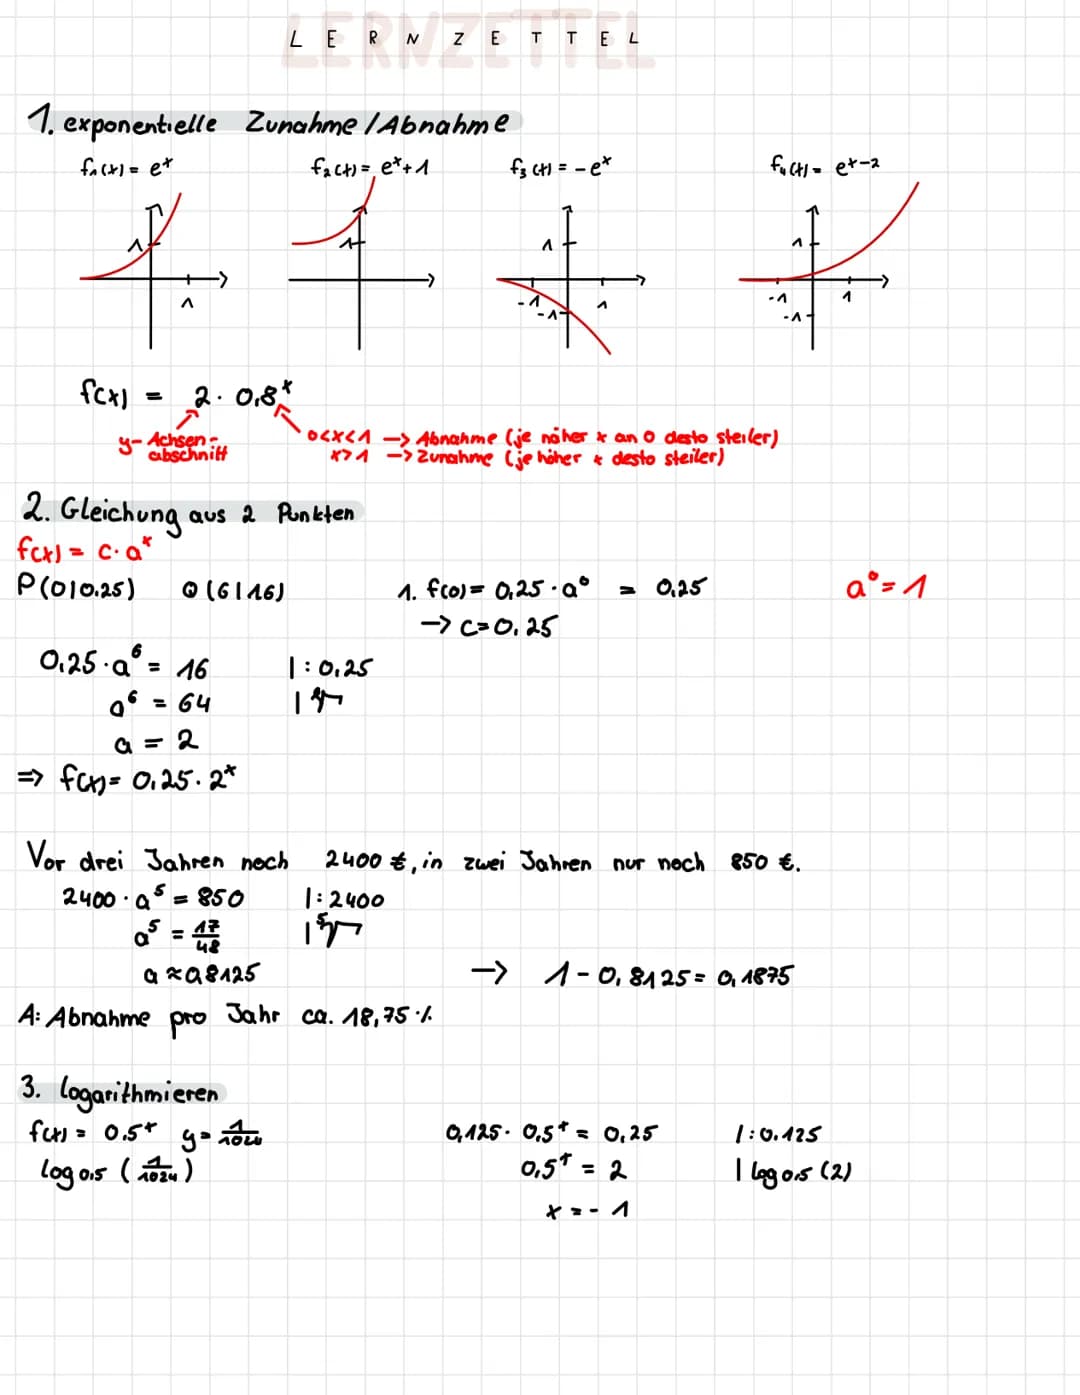 LERNZETTEL
1. exponentielle Zunahme/Abnahme
f₁(x) = eˣ f₂(x) = eˣ+1 f₃(x) = -eˣ f₄(x) = eˣ⁻²
1 1 1 1
1 -1 1 -1 1
-1 -1
f(x) = 2 · 0,8ˣ
y-Achsen-
abschnitt
0<x<1 -> Abnahme (je näher x an 0 desto steiler)
x>1 -> Zunahme (je höher x desto steiler)
2. Gleichung aus 2 Punkten
f(x) = c·aˣ
P(0|0.25) Q(6|16) 1. f(0) = 0,25 · a⁰ = 0,25 a⁰ = 1
-> c=0,25
0,25·a⁶ = 16 |:0,25
a⁶ = 64 | ⁶√
a = 2
=> f(x) = 0,25 · 2ˣ
Vor drei Jahren noch 2400 €, in zwei Jahren nur noch 850 €.
2400 · a⁵ = 850 |:2400
a⁵ = 17/48 | ⁵√
a ≈ 0,8125 -> 1 - 0,8125 = 0,1875
A: Abnahme pro Jahr ca. 18,75 %
3. logarithmieren
f(x) = 0.5ˣ y = 1/1024 0,125 · 0,5ˣ = 0,25 |:0.125
log₀,₅ (1/1024) 0,5ˣ = 2 | log₀,₅ (2)
x = -1